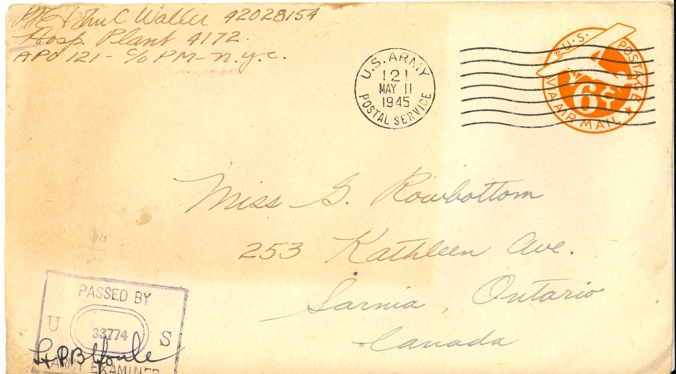 Pfc John C Waller 42028154
Hosp. Plant 4172.
APO 121 - c/o PM - N.Y.C.
U.S. ARMY
121
MAY 11
1945
POSTAL SERVICE
U.S. POSTAGE
6¢
VIA AIR MAIL
Miss G. Rowbottom
253 Kathleen Ave.
Sarnia, Ontario
Canada
PASSED BY
U 33774 S
ARMY EXAMINER